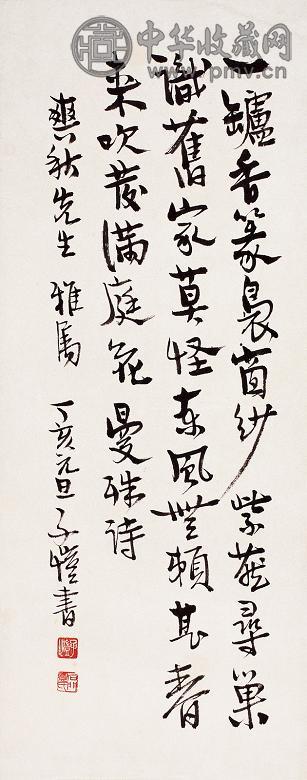 一罏香篆裊窗紗紫燕尋巢
識舊家莫怪東風無賴甚春
來吹發滿庭花 曼殊詩
興秋先生 雅屬 丁亥元旦 子愷書
中华收藏网
www.pmv.cn